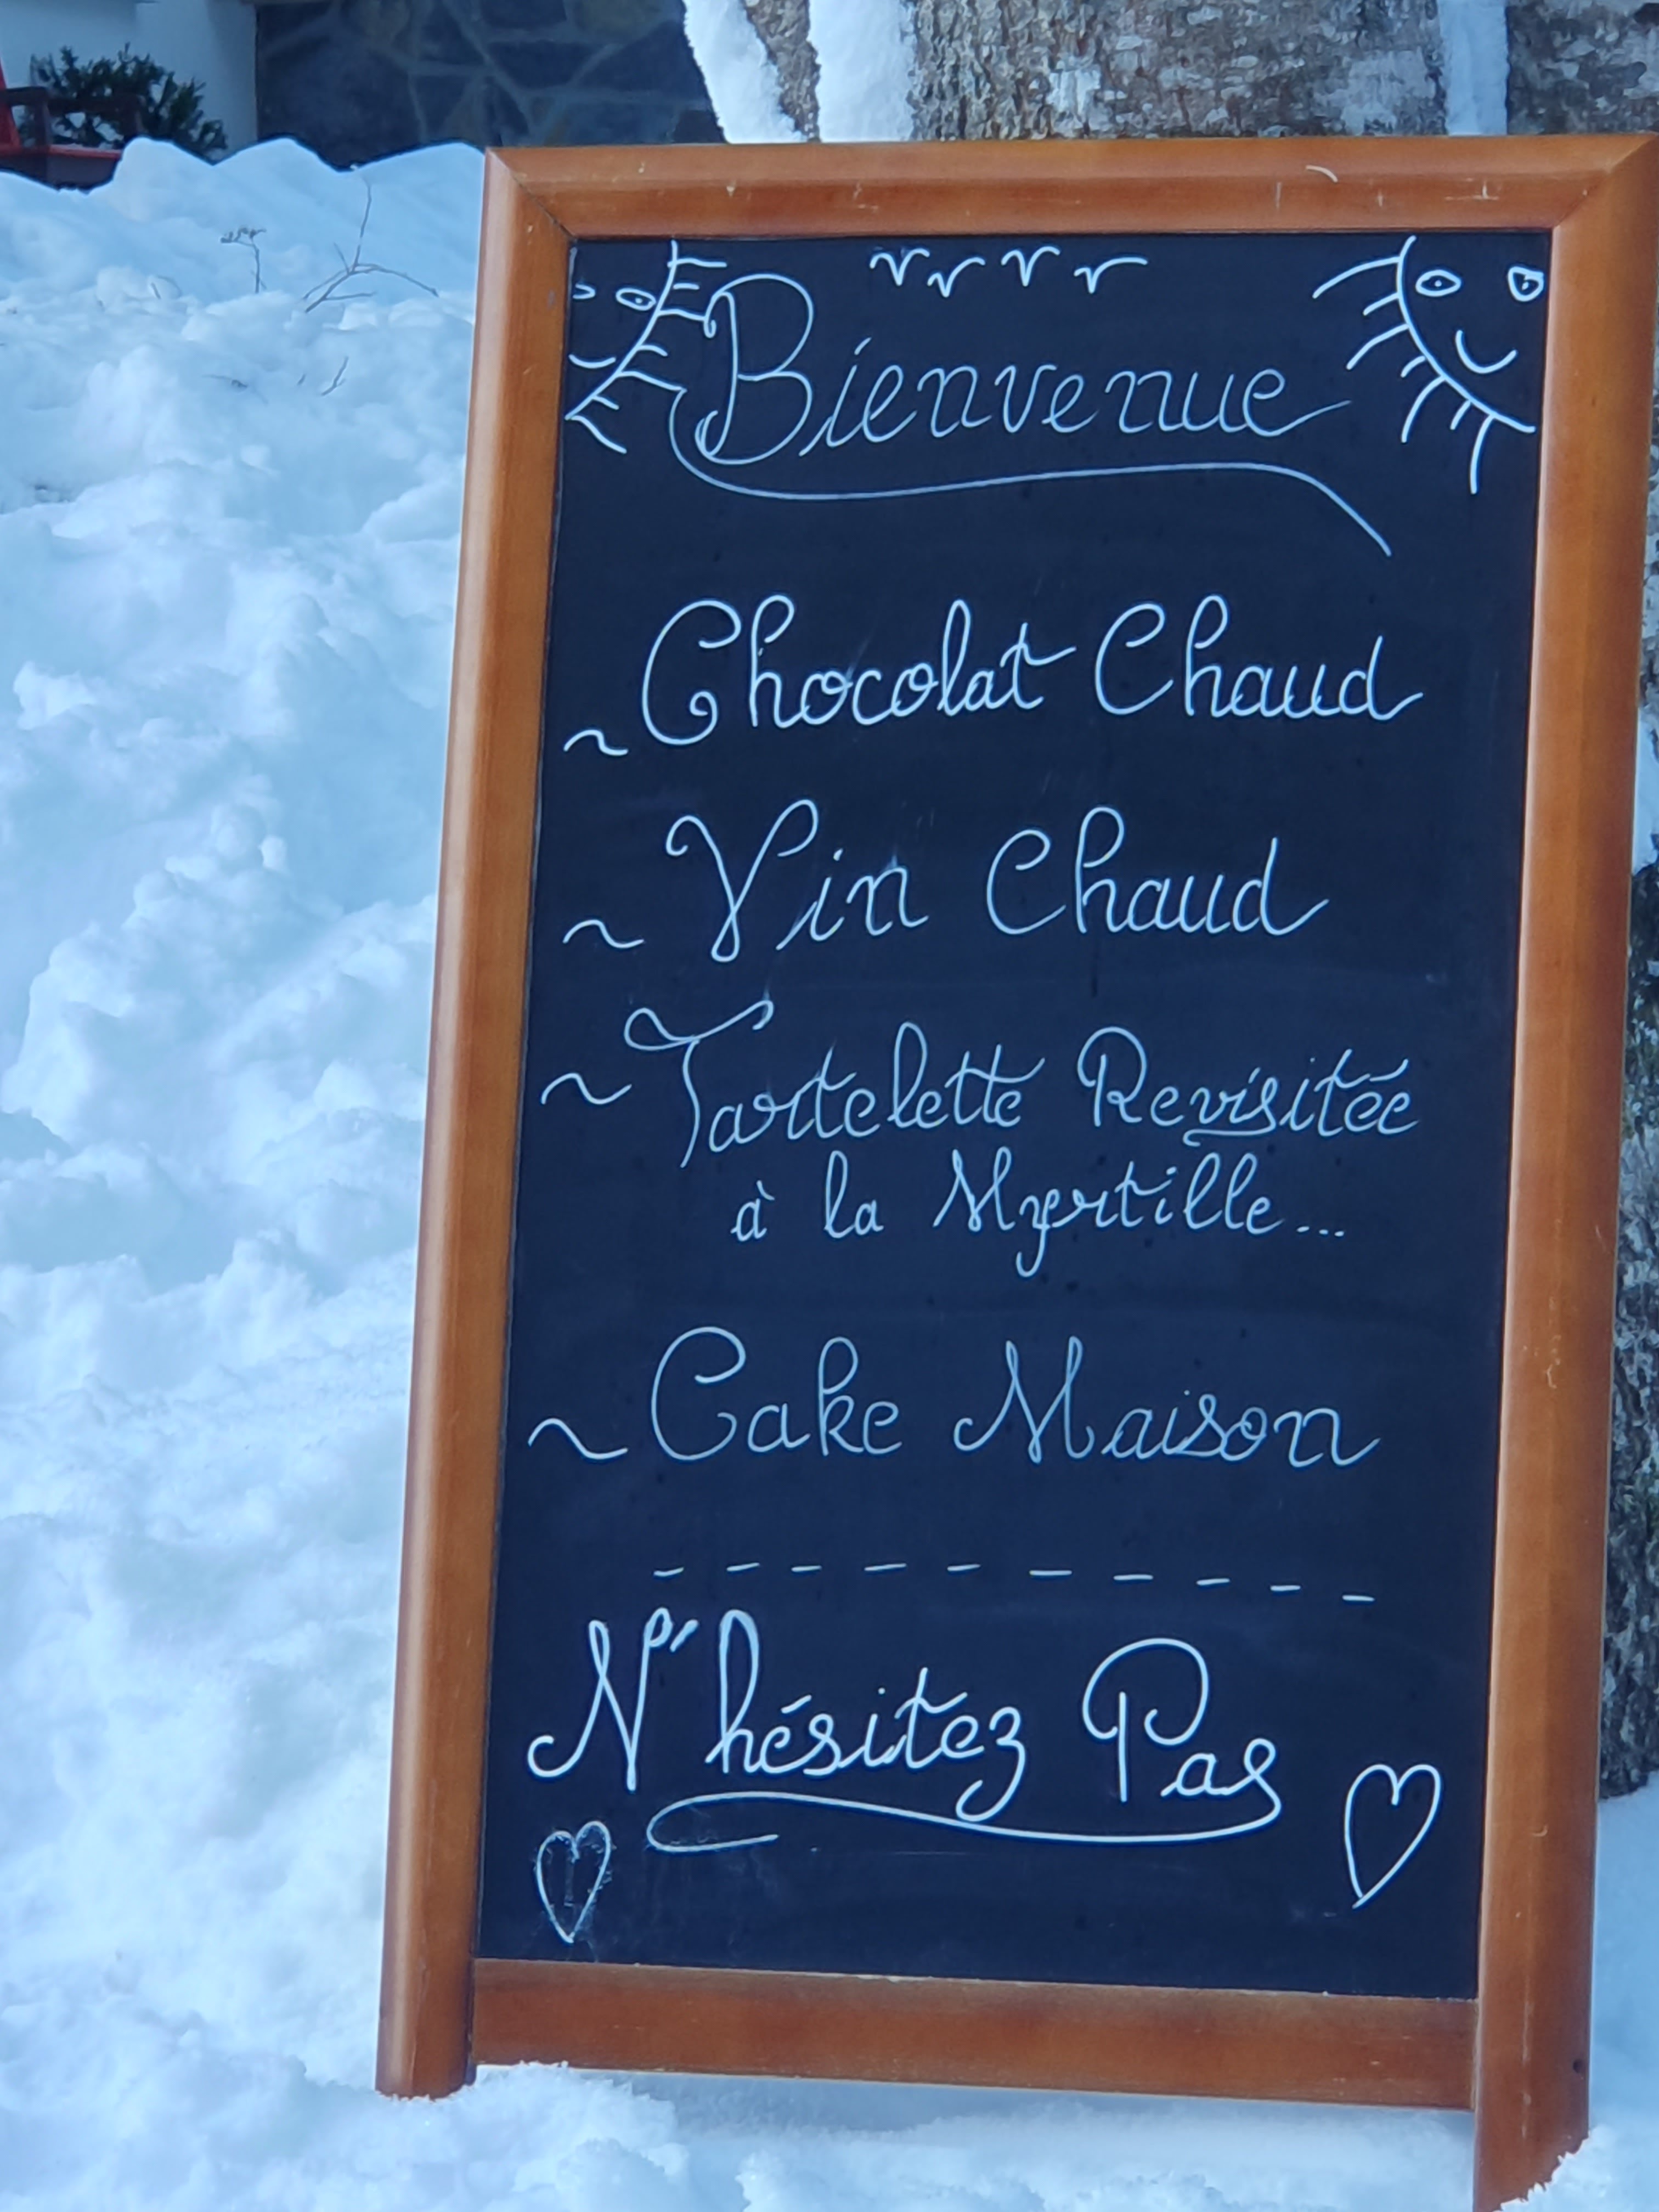 Bienvenue
~ Chocolat Chaud
~ Vin Chaud
~ Tartelette Revisitée
à la Myrtille...
~ Cake Maison
N'hésitez Pas